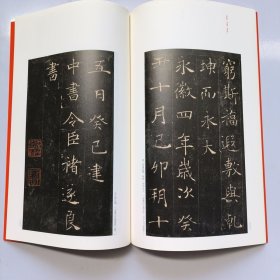 窮斯福遐敷與乾
坤而永大
永徽四年歲次癸
丑十月己卯朔十
五日癸巳建
中書令臣褚遂良
書